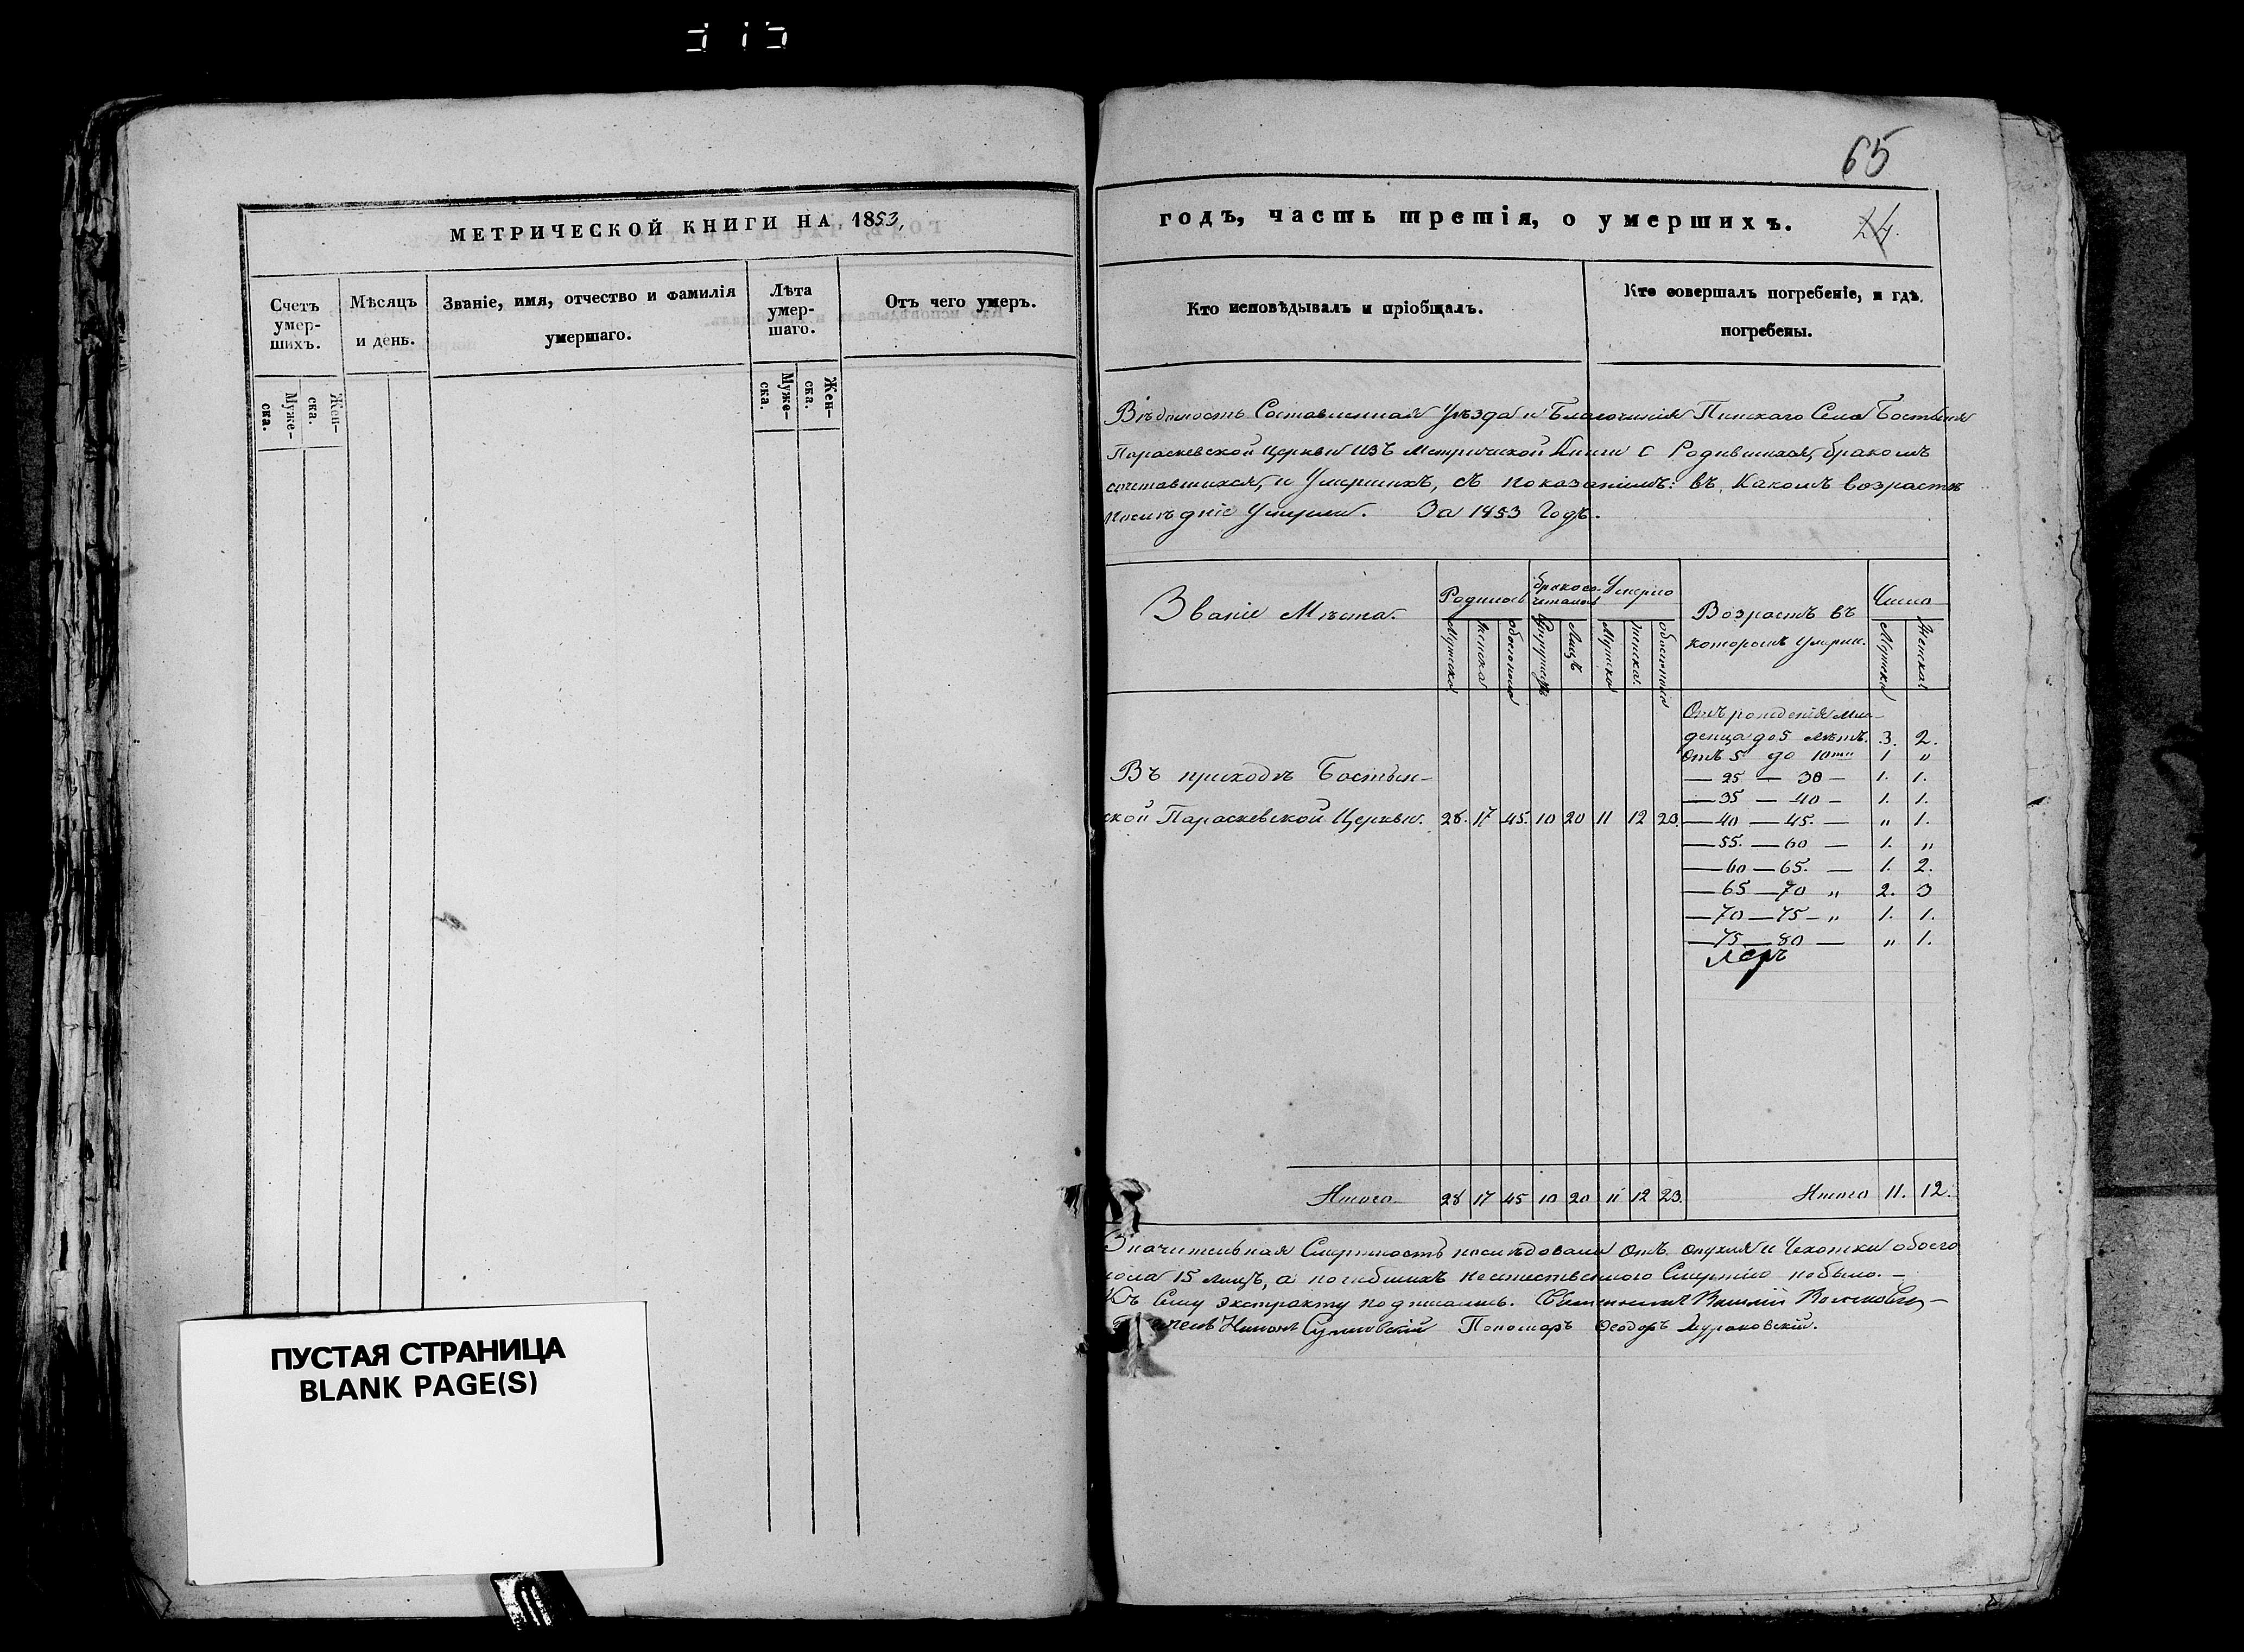 315
МЕТРИЧЕСКОЙ КНИГИ НА 1853,
Счетъ умер-шихъ.
Муже-ска.
Жен-ска.
Мѣсяцъ и день.
Званіе, имя, отчество и фамилія умершаго.
Лѣта умер-шаго.
Муже-ска.
Жен-ска.
Отъ чего умеръ.
ПУСТАЯ СТРАНИЦА
BLANK PAGE(S)
65
годъ, часть третія, о умершихъ.
24.
Кто исповѣдывалъ и пріобщалъ.
Кто совершалъ погребеніе, и гдѣ погребены.
Вѣдомость Составленная Уѣзда и Благочинія Пинскаго Села Бостыня
Параскевской Церкви изъ Метрической Книги о Родившихся, бракомъ
сочетавшихся, и Умершихъ, съ показаніемъ: въ какомъ возрастѣ
послѣдніе Умерли. За 1853 Годъ.
Званіе Мѣста.
Родилось
Мужска
женска
обоего пола
бракосо-четалось
Супружствъ
Лицъ
Умерло
Мужска
женска.
обоего пола
Возрастъ въ которомъ Умерли.
Число
Мужска
Женска
Отъ рожденія Мла-
денца до 5 лѣтъ. 3. 2.
Отъ 5 до 10ти 1 "
— 25 — 30 — 1. 1.
— 35 — 40 — 1. 1.
— 40 — 45. — " 1.
— 55. — 60 — 1. "
— 60 — 65. — 1. 2.
— 65 — 70 " 2. 3
— 70 — 75 — " 1. 1.
— 75 — 80 — " 1.
Въ приходѣ Бостын-
ской Параскевской Церкви. 28. 17 45. 10 20 11 12 23.
Итого 28 17 45 10 20 11 12 23.
Итого 11. 12.
Значительная Смертность послѣдовала отъ опухли и Чехотки обоего
пола 15 лицъ, а погибшихъ неестественною Смертію небыло. —
Къ Сему экстракту подписались. Священникъ
Пономарь Ѳеодоръ Мураковскій.